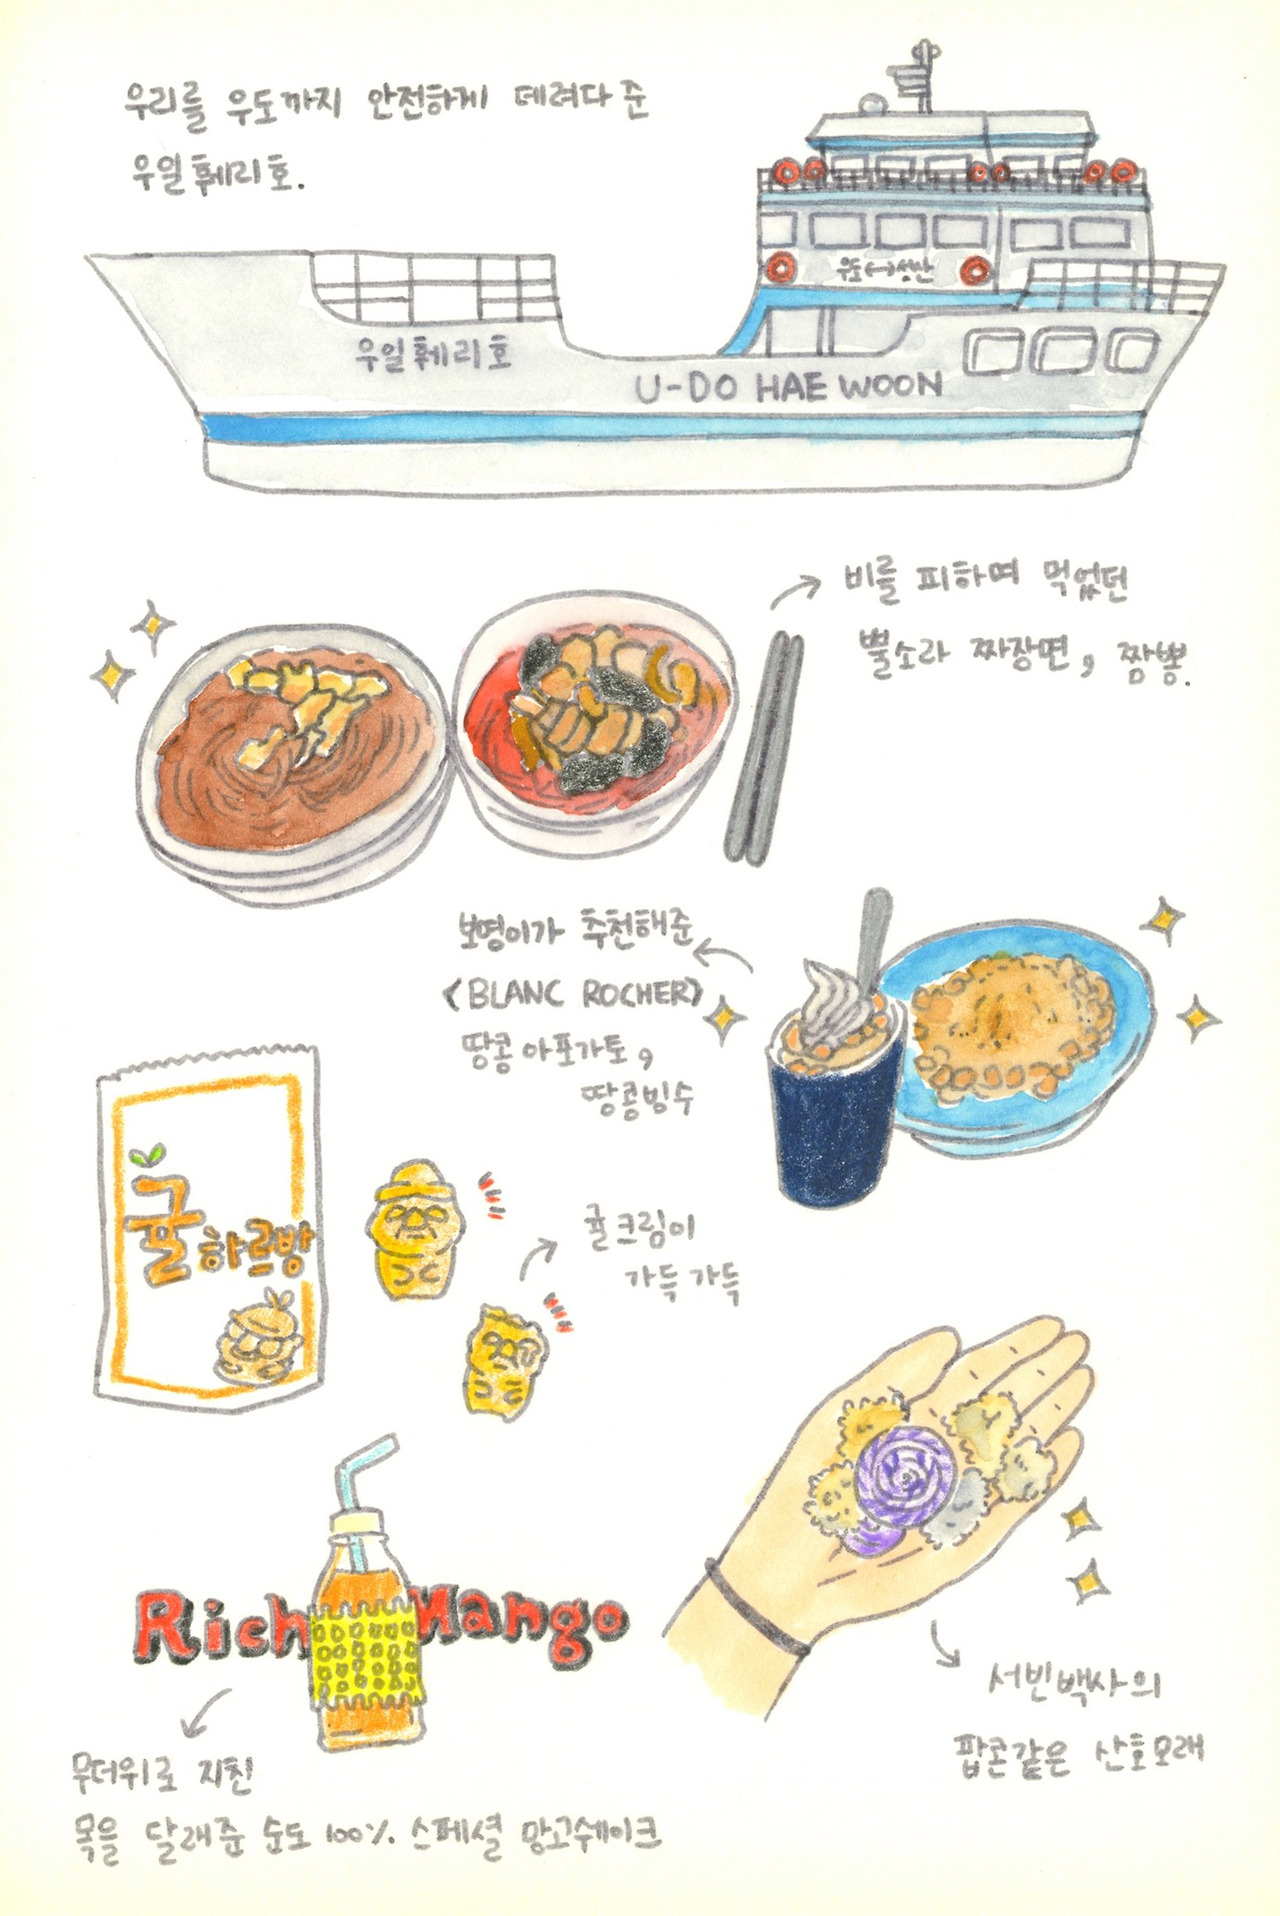 우리를 우도까지 안전하게 데려다 준
우일훼리호.
우도↔성산
우일훼리호
U-DO HAE WOON
비를 피하며 먹었던
뿔소라 짜장면, 짬뽕.
보영이가 추천해준
<BLANC ROCHER>
땅콩 아포가토,
땅콩빙수
귤하르방
귤크림이
가득 가득
Rich Mango
무더위로 지친
목을 달래준 순도 100%. 스페셜 망고쉐이크
서빈백사의
팝콘같은 산호모래